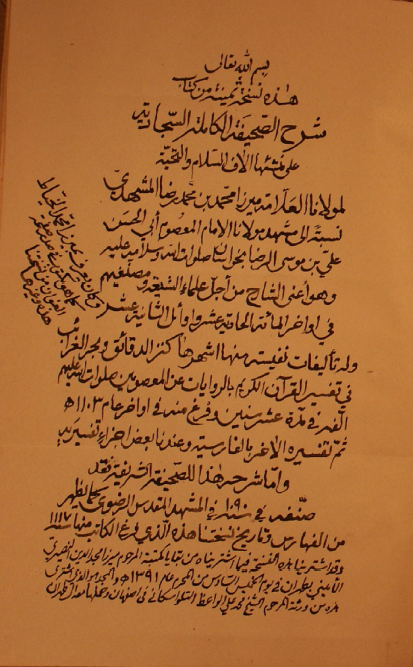 بسم الله تعالى
هذه نسخة ثمينة من كتاب
شرح الصحيفة الكاملة السجادية
على منشئها آلاف السلام والتحية
لمولانا العلامة ميرزا محمد بن محمد رضا المشهدي
نسبة الى مشهد مولانا الامام المعصوم أبي الحسن
علي بن موسى الرضا بخراسان صلوات الله وسلامه عليه
وهو أعني الشارح من أجل علماء الشيعة و مصنفيهم
في اواخر المائة الحادية عشر واوائل الثانية عشر
وله تأليفات نفيسة منها اشهرها كنز الدقائق وبحر الغرائب
في تفسير القرآن الكريم بالروايات عن المعصومين صلوات الله عليهم
ألفه في مدة عشر سنين و فرغ منه في اواخر عام ١١٠٣ ه
ثم تفسيره الآخر بالفارسية وعندنا بعض اجزاء تفسيريه
واما شرحه هذا للصحيفة الشريفة فقد
صنفه في سنة ١٠٩٠ في المشهد المقدس الرضوي كما يظهر
من الفهارس و تاريخ نسختنا هذه الذي فرغ الكاتب منها سنة ١١١٧
وقد اشترينا هذه النسخة فيما اشتريناه من بقايا مكتبة المرحوم ميرزا مجد الدين النصيري
الأميني بطهران في يوم الخميس السادس من المحرم عام ١٣٩١ ه
من ورثة المرحوم الشيخ محمد علي الواعظ في اصفهان
وكان يعرف بميرزا محمد الخياط